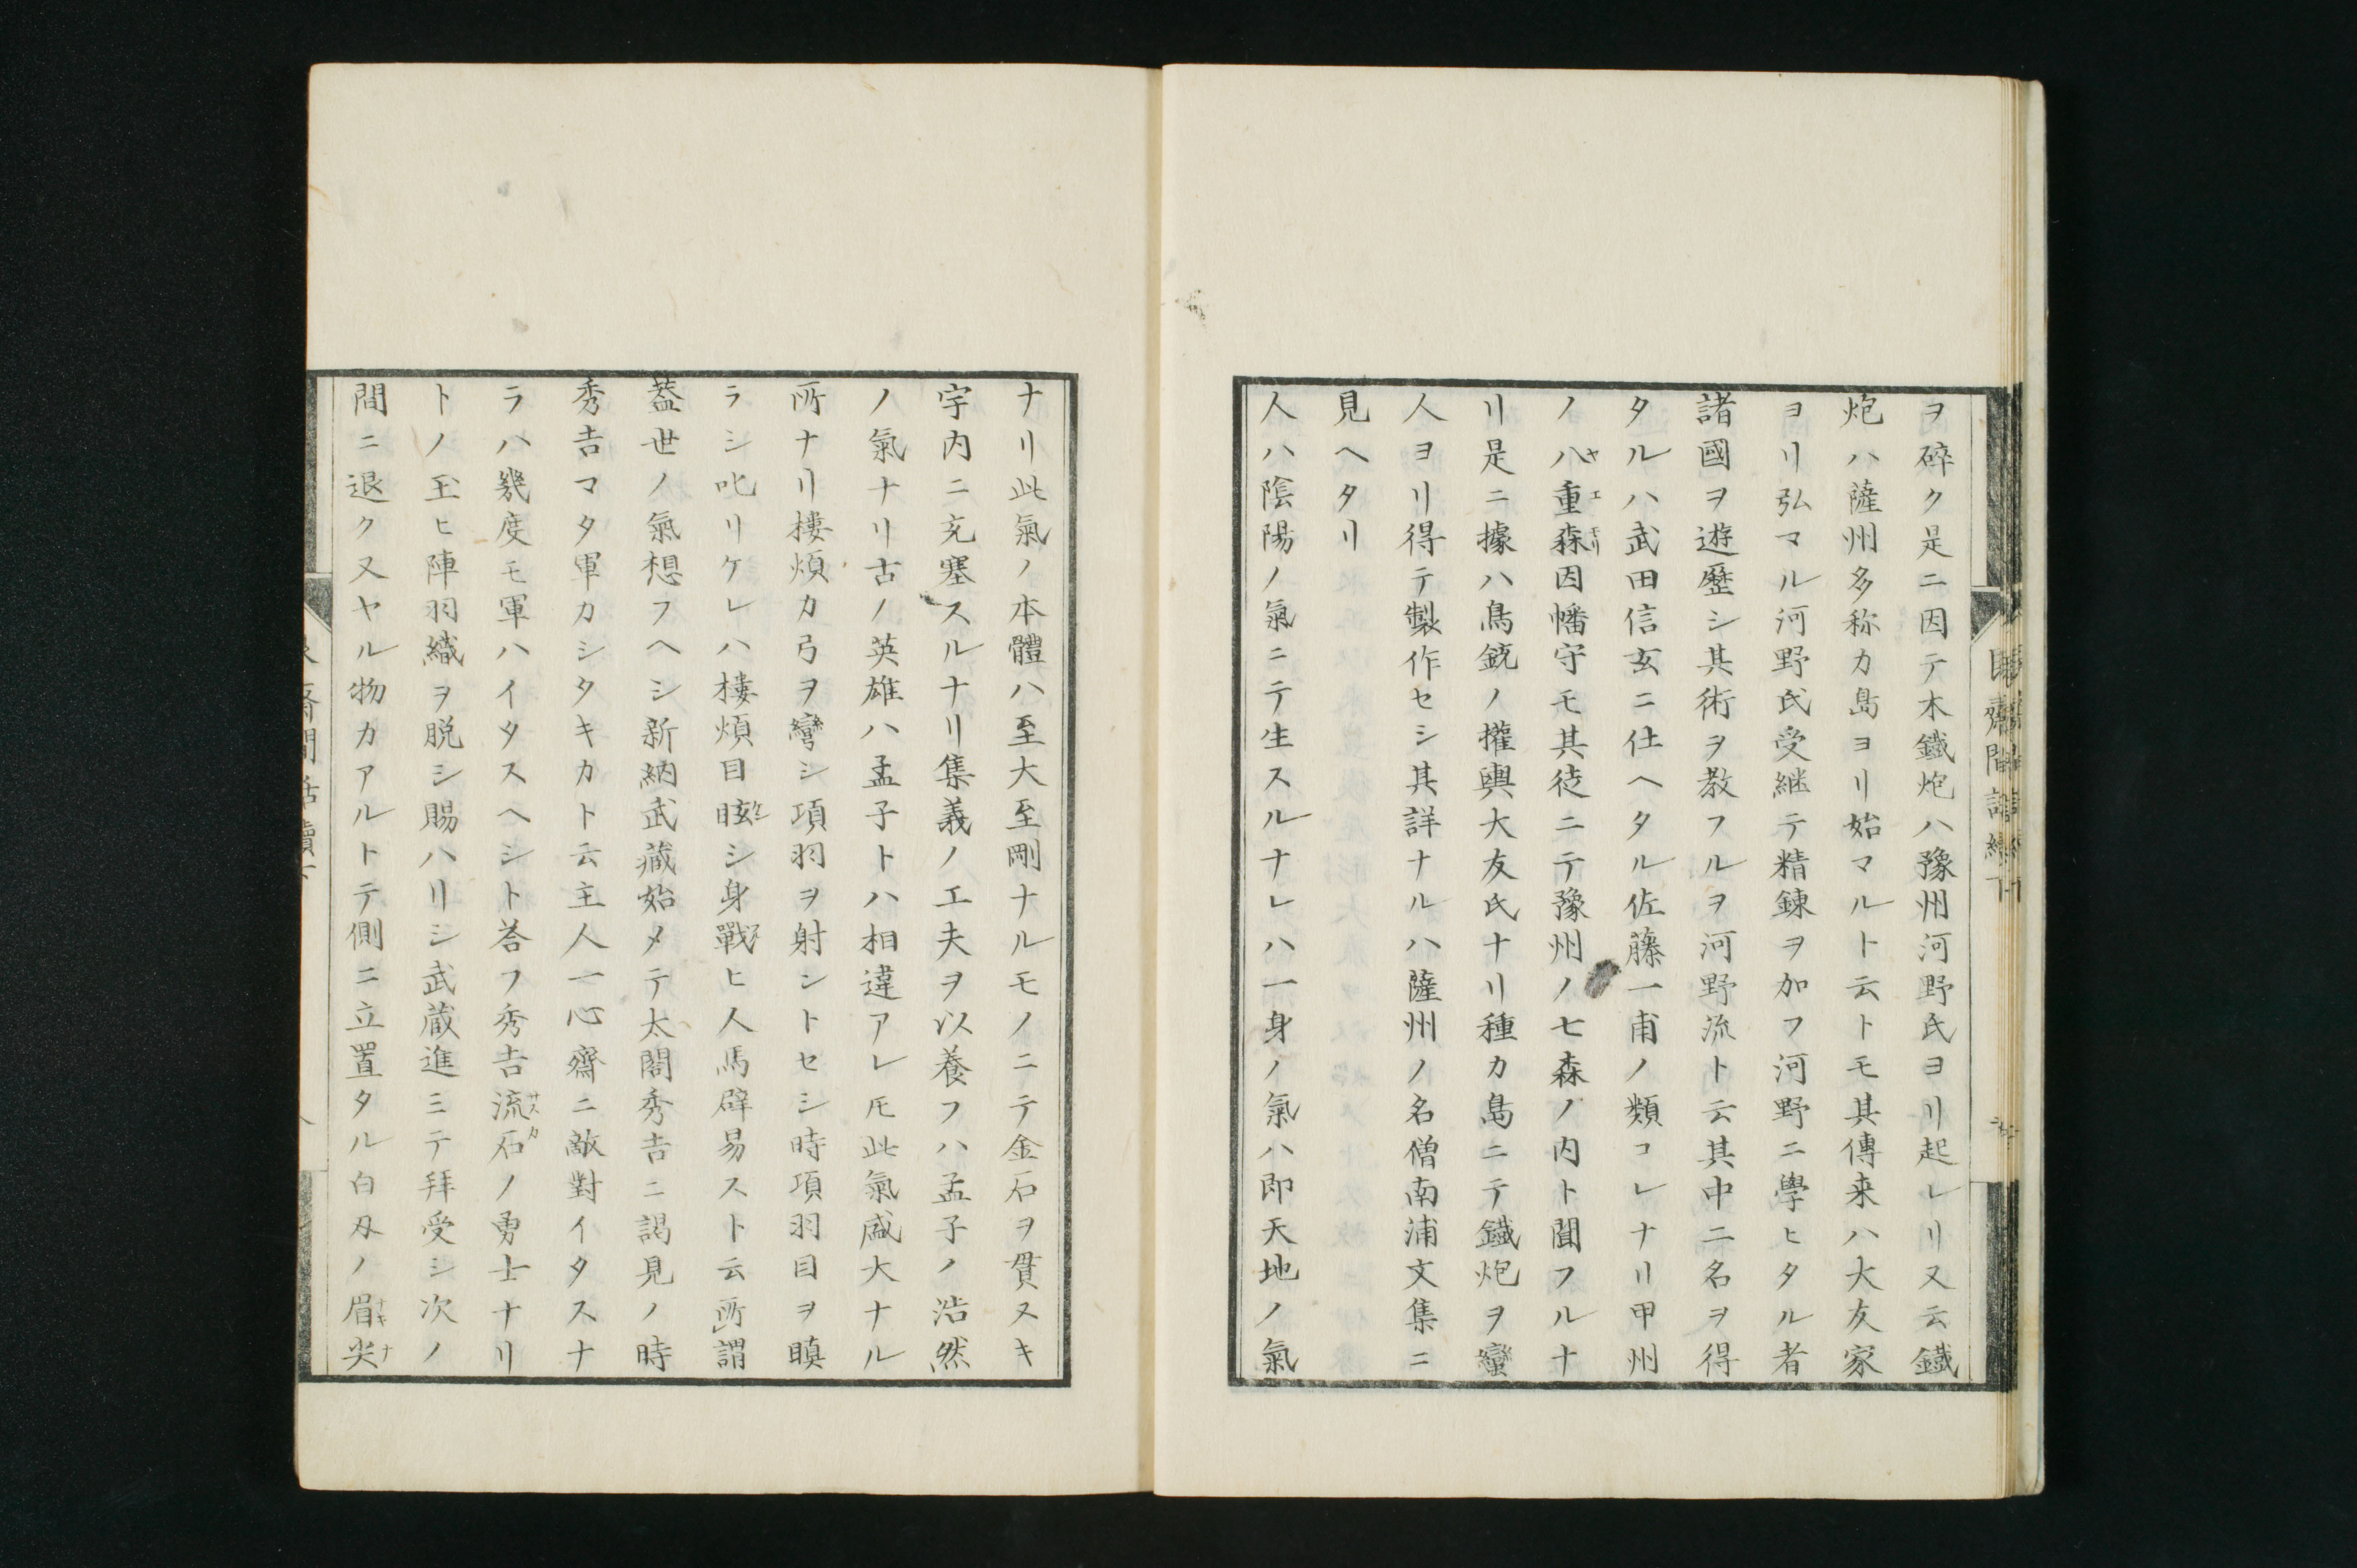 ヲ碎ク是ニ因テ木鐵炮ハ豫州河野氏ヨリ起レリ又云鐵
炮ハ薩州多称カ島ヨリ始マルト云トモ其傳来ハ大友家
ヨリ弘マル河野氏受継テ精錬ヲ加フ河野ニ學ヒタル者
諸國ヲ遊歷シ其術ヲ教フルヲ河野流ト云其中ニ名ヲ得
タルハ武田信玄ニ仕ヘタル佐藤一甫ノ類コレナリ甲州
ノ八重森因幡守モ其徒ニテ豫州ノ七森ノ内ト聞フルナ
リ是ニ據ハ鳥銃ノ權輿大友氏ナリ種カ島ニテ鐵炮ヲ蠻
人ヨリ得テ製作セシ其詳ナルハ薩州ノ名僧南浦文集ニ
見ヘタリ
人ハ陰陽ノ氣ニテ生スルナレハ一身ノ氣ハ即天地ノ氣
ナリ此氣ノ本體ハ至大至剛ナルモノニテ金石ヲ貫ヌキ
宇内ニ充塞スルナリ集義ノ工夫ヲ以養フハ孟子ノ浩然
ノ氣ナリ古ノ英雄ハ孟子トハ相違アレ𪜈此氣盛大ナル
所ナリ樓煩カ弓ヲ彎シ項羽ヲ射ントセシ時項羽目ヲ瞋
ラシ叱リケレハ樓煩目眩シ身戰ヒ人馬辟易スト云所謂
蓋世ノ氣想フヘシ新納武藏始メテ太閤秀吉ニ謁見ノ時
秀吉マタ軍カシタキカト云主人一心齋ニ敵對イタスナ
ラハ幾度モ軍ハイタスヘシト荅フ秀吉流石ノ勇士ナリ
トノ玉ヒ陣羽織ヲ脱シ賜ハリシ武蔵進ミテ拜受シ次ノ
間ニ退ク又ヤル物カアルトテ側ニ立置タル白刄ノ眉尖